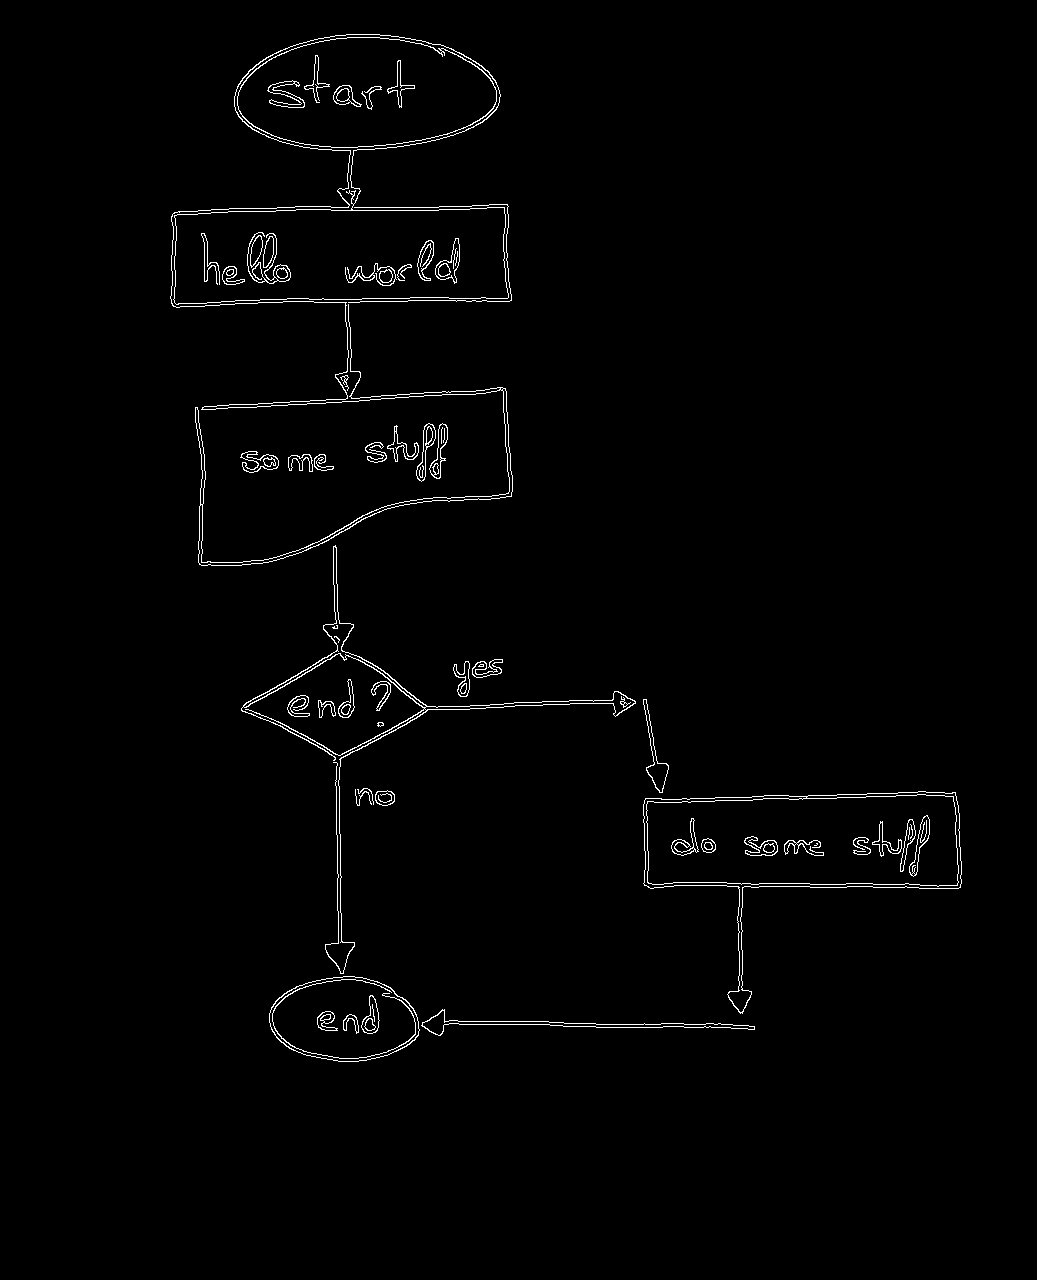 start
hello world
some stuff
yes
end?
no
do some stuff
end